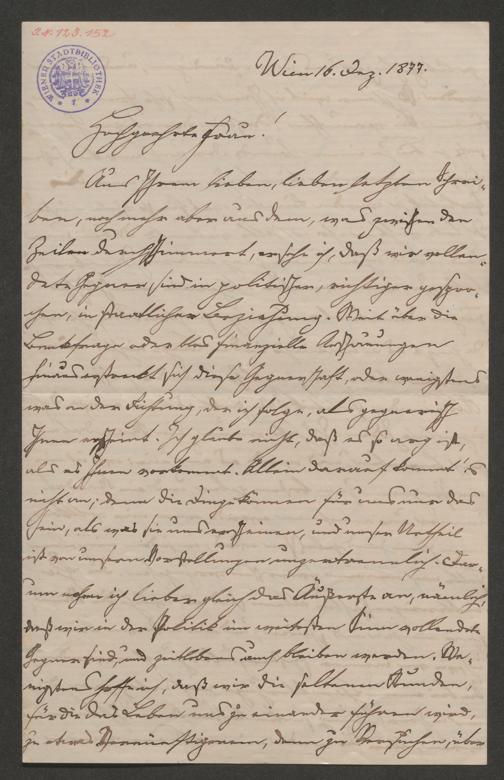 I.N. 123.152
WIENER STADTBIBLIOTHEK
Wien 16. Dez. 1877.
Hochgeehrte Frau!
Aus Ihrem lieben, lieben letzten Schrei-
ben, noch mehr aber aus dem, was zwischen den
Zeilen durchschimmert, ersehe ich, daß wir vollen-
dete Gegner sind in politischer, richtiger gespro-
chen, in staatlicher Beziehung. Weit über die
Bankfrage oder blos finanzielle Anschauungen
hinaus erstreckt sich diese Gegnerschaft, oder wenigstens
was an der Richtung, der ich folge, als gegnerisch
Ihnen erscheint. Ich glaube nicht, daß es so arg ist,
als es Ihnen vorkommt. Allein darauf kommt's
nicht an; denn die Dinge können für uns nur das
sein, als was sie uns erscheinen, und unser Urtheil
ist von unsern Vorstellungen unzertrennlich. Dar-
um nehm ich lieber gleich das Äußerste an, nämlich,
daß wir in der Politik im weitesten Sinn vollendete
Gegner sind, und zeitlebens auch bleiben werden. We-
nigstens hoffe ich, daß wir die seltenen Stunden,
für die das Leben uns zu einander führen wird,
zu etwas Vernünftigerem, denn zu Versuchen, über